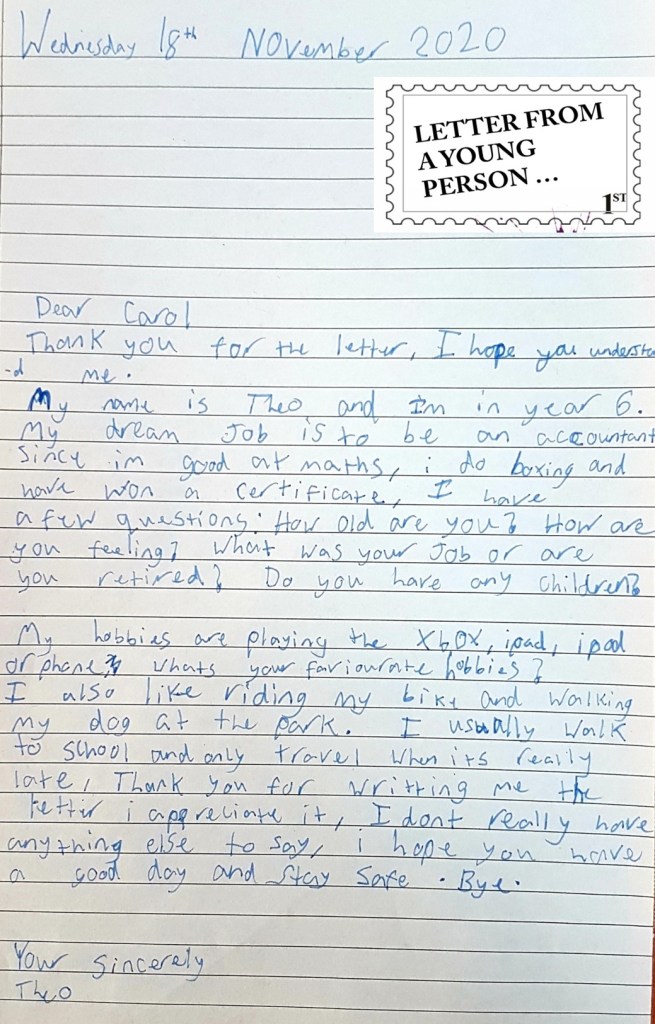 Wednesday 18th November 2020
LETTER FROM
A YOUNG
PERSON ...
1ST
Dear Carol
Thank you for the letter, I hope you understa
-d me.
My name is Theo and Im in year 6.
My dream Job is to be an accountant
Since im good at maths, i do boxing and
have won a certificate, I have
a few questions: How old are you? How are
you feeling? What was your Job or are
you retired? Do you have any children?
My hobbies are playing the Xbox, ipad, ipod
or phone, whats your faviourate hobbies?
I also like riding my bike and walking
my dog at the park. I usually walk
to school and only travel when its really
late, Thank you for writting me the
letter i appreciate it, I dont really have
anything else to say, i hope you have
a good day and stay safe. Bye.
Your sincerely
Theo